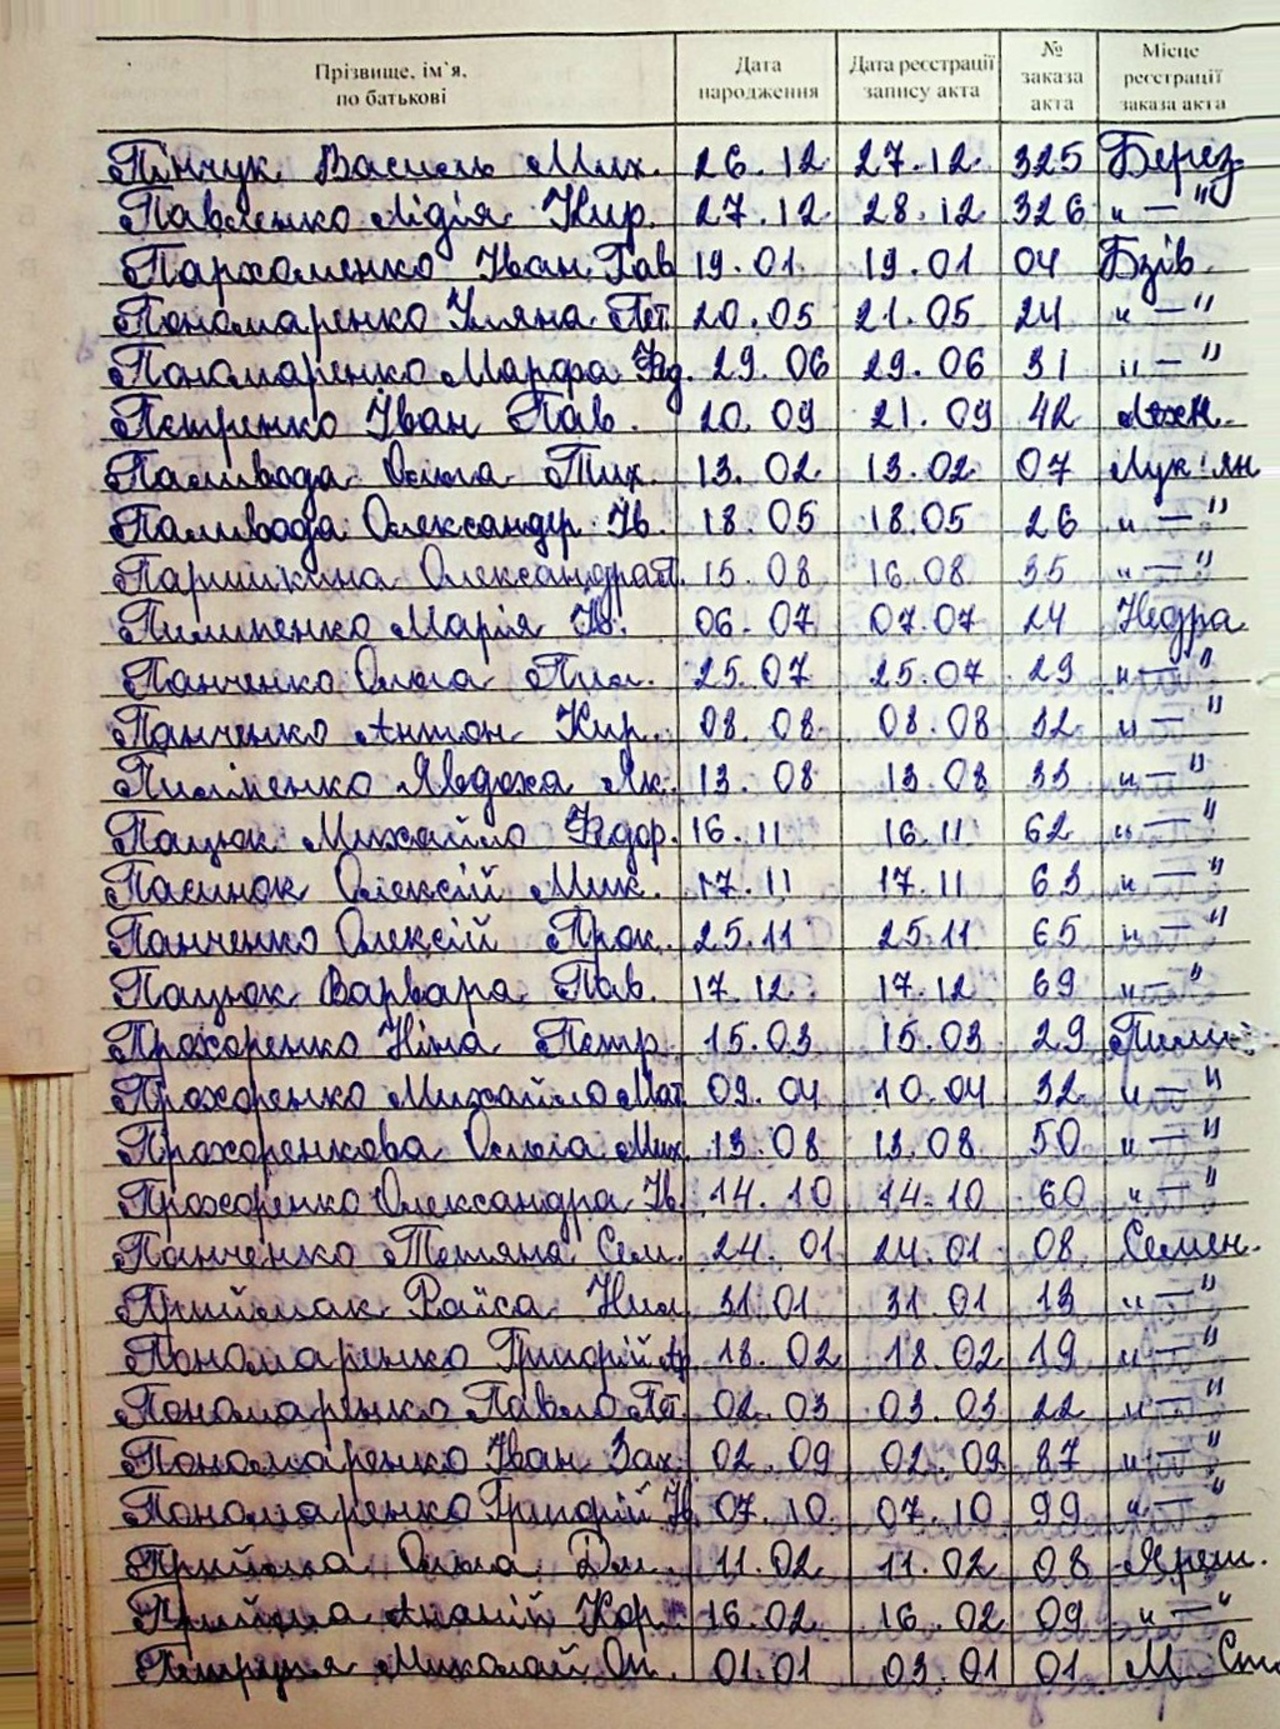 Прізвище, ім`я, по батькові Дата народження Дата реєстрації запису акта № заказа акта Місце реєстрації заказа акта
Пінчук Василь Мих. 26.12 27.12 325 Берез.
Павленко Лідія Кир. 27.12 28.12 326 "—"
Пархоменко Іван Пав 19.01 19.01 04 Бзів.
Пономаренко Уляна Пет. 20.05 21.05 24 "—"
Пономаренко Марфа Фед. 29.06 29.06 31 "—"
Петренко Іван Пав. 20.09 21.09 42
Паливода Ольга Тих. 13.02 13.02 07 Лук'ян
Паливода Олександр Ів. 18.05 18.05 26 "—"
Паришкина Олександра 15.08 16.08 35 "—"
Пилипенко Марія Ів. 06.07 07.07 24 Недра
Панченко Ольга Пил. 25.07 25.07 29 "—"
Панченко Антон Кир. 08.08 08.08 32 "—"
Пилипенко Явдоха Як. 13.08 13.08 33 "—"
Пацюк Михайло Федор. 16.11 16.11 62 "—"
Пасинок Олексій Мик. 17.11 17.11 63 "—"
Панченко Олексій Прок. 25.11 25.11 65 "—"
Пацюк Варвара Пав. 17.12 17.12 69 "—"
Прохоренко Ніна Петр. 15.03 15.03 29 Пилип
Прохоренко Михайло Мат. 09.04 10.04 32 "—"
Прохоренкова Ольга Мих. 13.08 13.08 50 "—"
Прохоренко Олександра Ів. 14.10 14.10 60 "—"
Панченко Тетяна Сем. 24.01 24.01 08 Семен.
Приймак Раїса Нил. 31.01 31.01 13 "—"
Пономаренко Григорій 18.02 18.02 19 "—"
Пономаренко Павло Пет. 02.03 03.03 22 "—"
Пономаренко Іван Зах. 02.09 02.09 87 "—"
Пономаренко Григорій Ів. 07.10 07.10 99 "—"
Прийма Ольга Дм. 11.02 11.02 08 Яреш.
Прийма Ананій Кор. 16.02 16.02 09 "—"
Микола Оп. 01.01 03.01 01 М. Ст